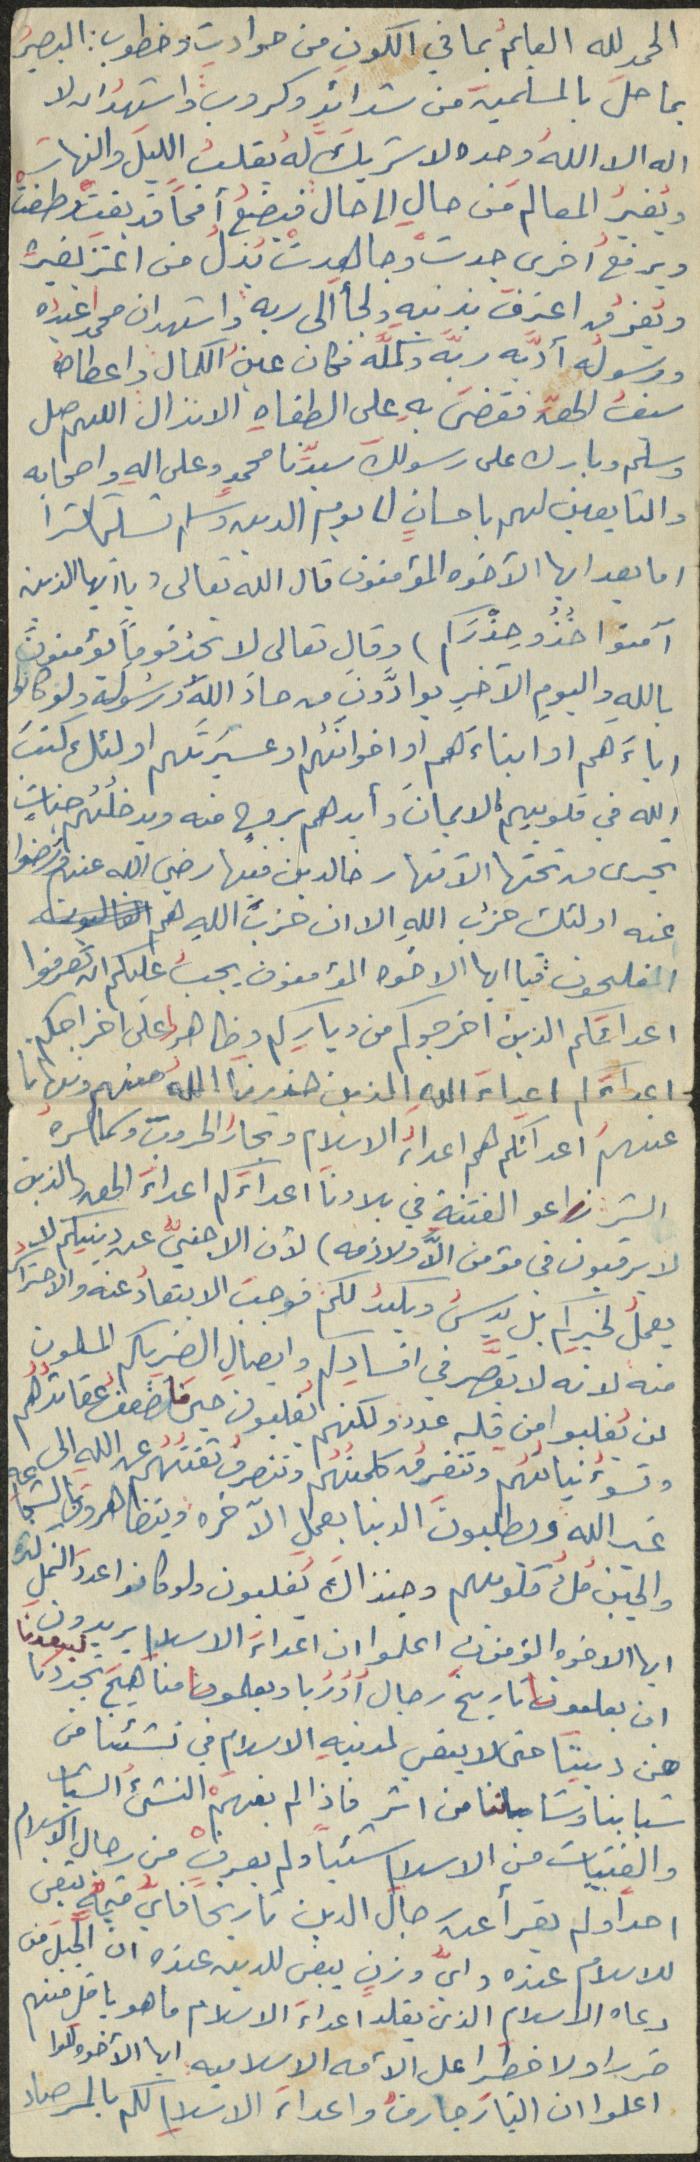 الحمد لله العالم بما في الكون من حوادث وخطوب: البصير
بما حل بالمسلمين من شدائد وكروب واشهد ان لا
اله الا الله وحده لا شريك له يقلب الليل والنهار
ويغير المعالم من حال الى حال فيضع أمماً قد بغت وطغت
ويرفع أخرى جدت وجاهدت يذل من اعتز بغيره
ويعز من اعترف بذنبه ولجأ الى ربه واشهد ان محمدا عبده
ورسوله أدبه ربه وكمله فكان عين الكمال واعطاه
سيف الحق فقضى به على الطغاه الانذال اللهم صل
وسلم وبارك على رسولك سيدنا محمد وعلى اله واصحابه
والتابعين لهم باحسان الى يوم الدين وسلم تسليما كثيرا
اما بعد ايها الأخوه المؤمنون قال الله تعالى (يا أيها الذين
آمنوا خُذُوا حِذْرَكم) وقال تعالى لا تجد قوماً يؤمنون
بالله واليوم الآخر يوادّون من حادّ الله ورسوله ولو كانوا
اباءَهم او ابناءَهم او اخوانَهُم او عشيرتَهم اولئك كتب
الله في قلوبهم الايمان وأيدهم بروح منه ويدخلهم جناتٍ
تجرى من تحتها الآنهار خالدين فيها رضي الله عنهم ورضوا
عنه اولئك حزب الله الا ان حزب الله هم
المفلحون فيا ايها الاخوه المؤمنون يجب عليكم ان تعرفوا
اعدائكم الذين اخرجوكم من دياركم وظاهروا على اخراجكم
اعداءَكم اعداء الله الذين حذرنا الله منهم ونهانا
عنهم اعدائكم هم اعداءُ الاسلام وتجار الحروب وسماسرة
الشر زراعو الفتنة في بلادنا اعداءَكم اعداءَ الحق الذين
لا يرقبون في مؤمن الاًّ ولا ذمه) لأن الاجنبيّ عن دينكم لا
يعمل لخيركم بل يدس ويكيد لكم فوجب الابتعادُ عنه والاحتراز
منه لانه لا يقصر في افسادكم وايصال الضر بكم المسلمون
لن يُغلبوا من قله عدد ولكنهم يُغلبون حين تضعف عقائدهُم
وتسوءُ نياتهُم وتتفرق كلمتُهُم وتنصرفُ ثقتُهُم عن الله الى
غير الله ويطلبون الدنيا بعمل الآخره ويتظاهرون بالشجاعه
والجبن ملُ قلوبهم وحينذاك يُغلبون ولو كانوا عدد النمل كثره
ايها الاخوه المؤمنون اعلموا ان اعداءَ الاسلام يريدون
ان يعلمونا تاريخَ رجال أوربا ويعلمونا مناهجَ تجردنا لتبعدنا
من ديننا حتى لا يبقى لمدنيه الاسلام في نشئنا من
شبابنا وشاباتنا من اثر فاذا لم يفهم النشئُ الشباب
والفتيات من الاسلام شيئاً ولم يعرف من رجال الاسلام
احداً ولم يقرأ عن رجال الدين تاريخا فأيّ قيمةٍ تبقى
للاسلام عنده وايّ وزنٍ يبقى للدين عنده ان الجيل من
دعاه الاسلام الذي يقلد اعداء الاسلام ما هو باقل منهم
ضررا ولا خطرا على الأمه الاسلاميه ايها الأخوه
اعلموا ان التيار جارف واعداء الاسلام لكم بالمرصاد